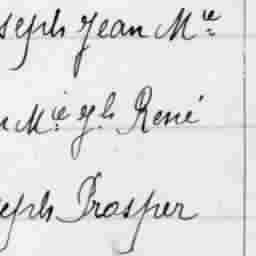 seph Jean Mie
n Mie Jh René
seph Prosper